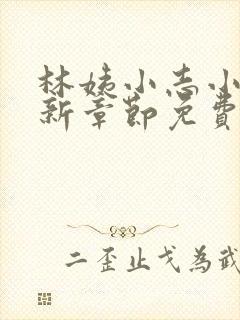 林姨小志小
新章節免費
二歪止戈為武